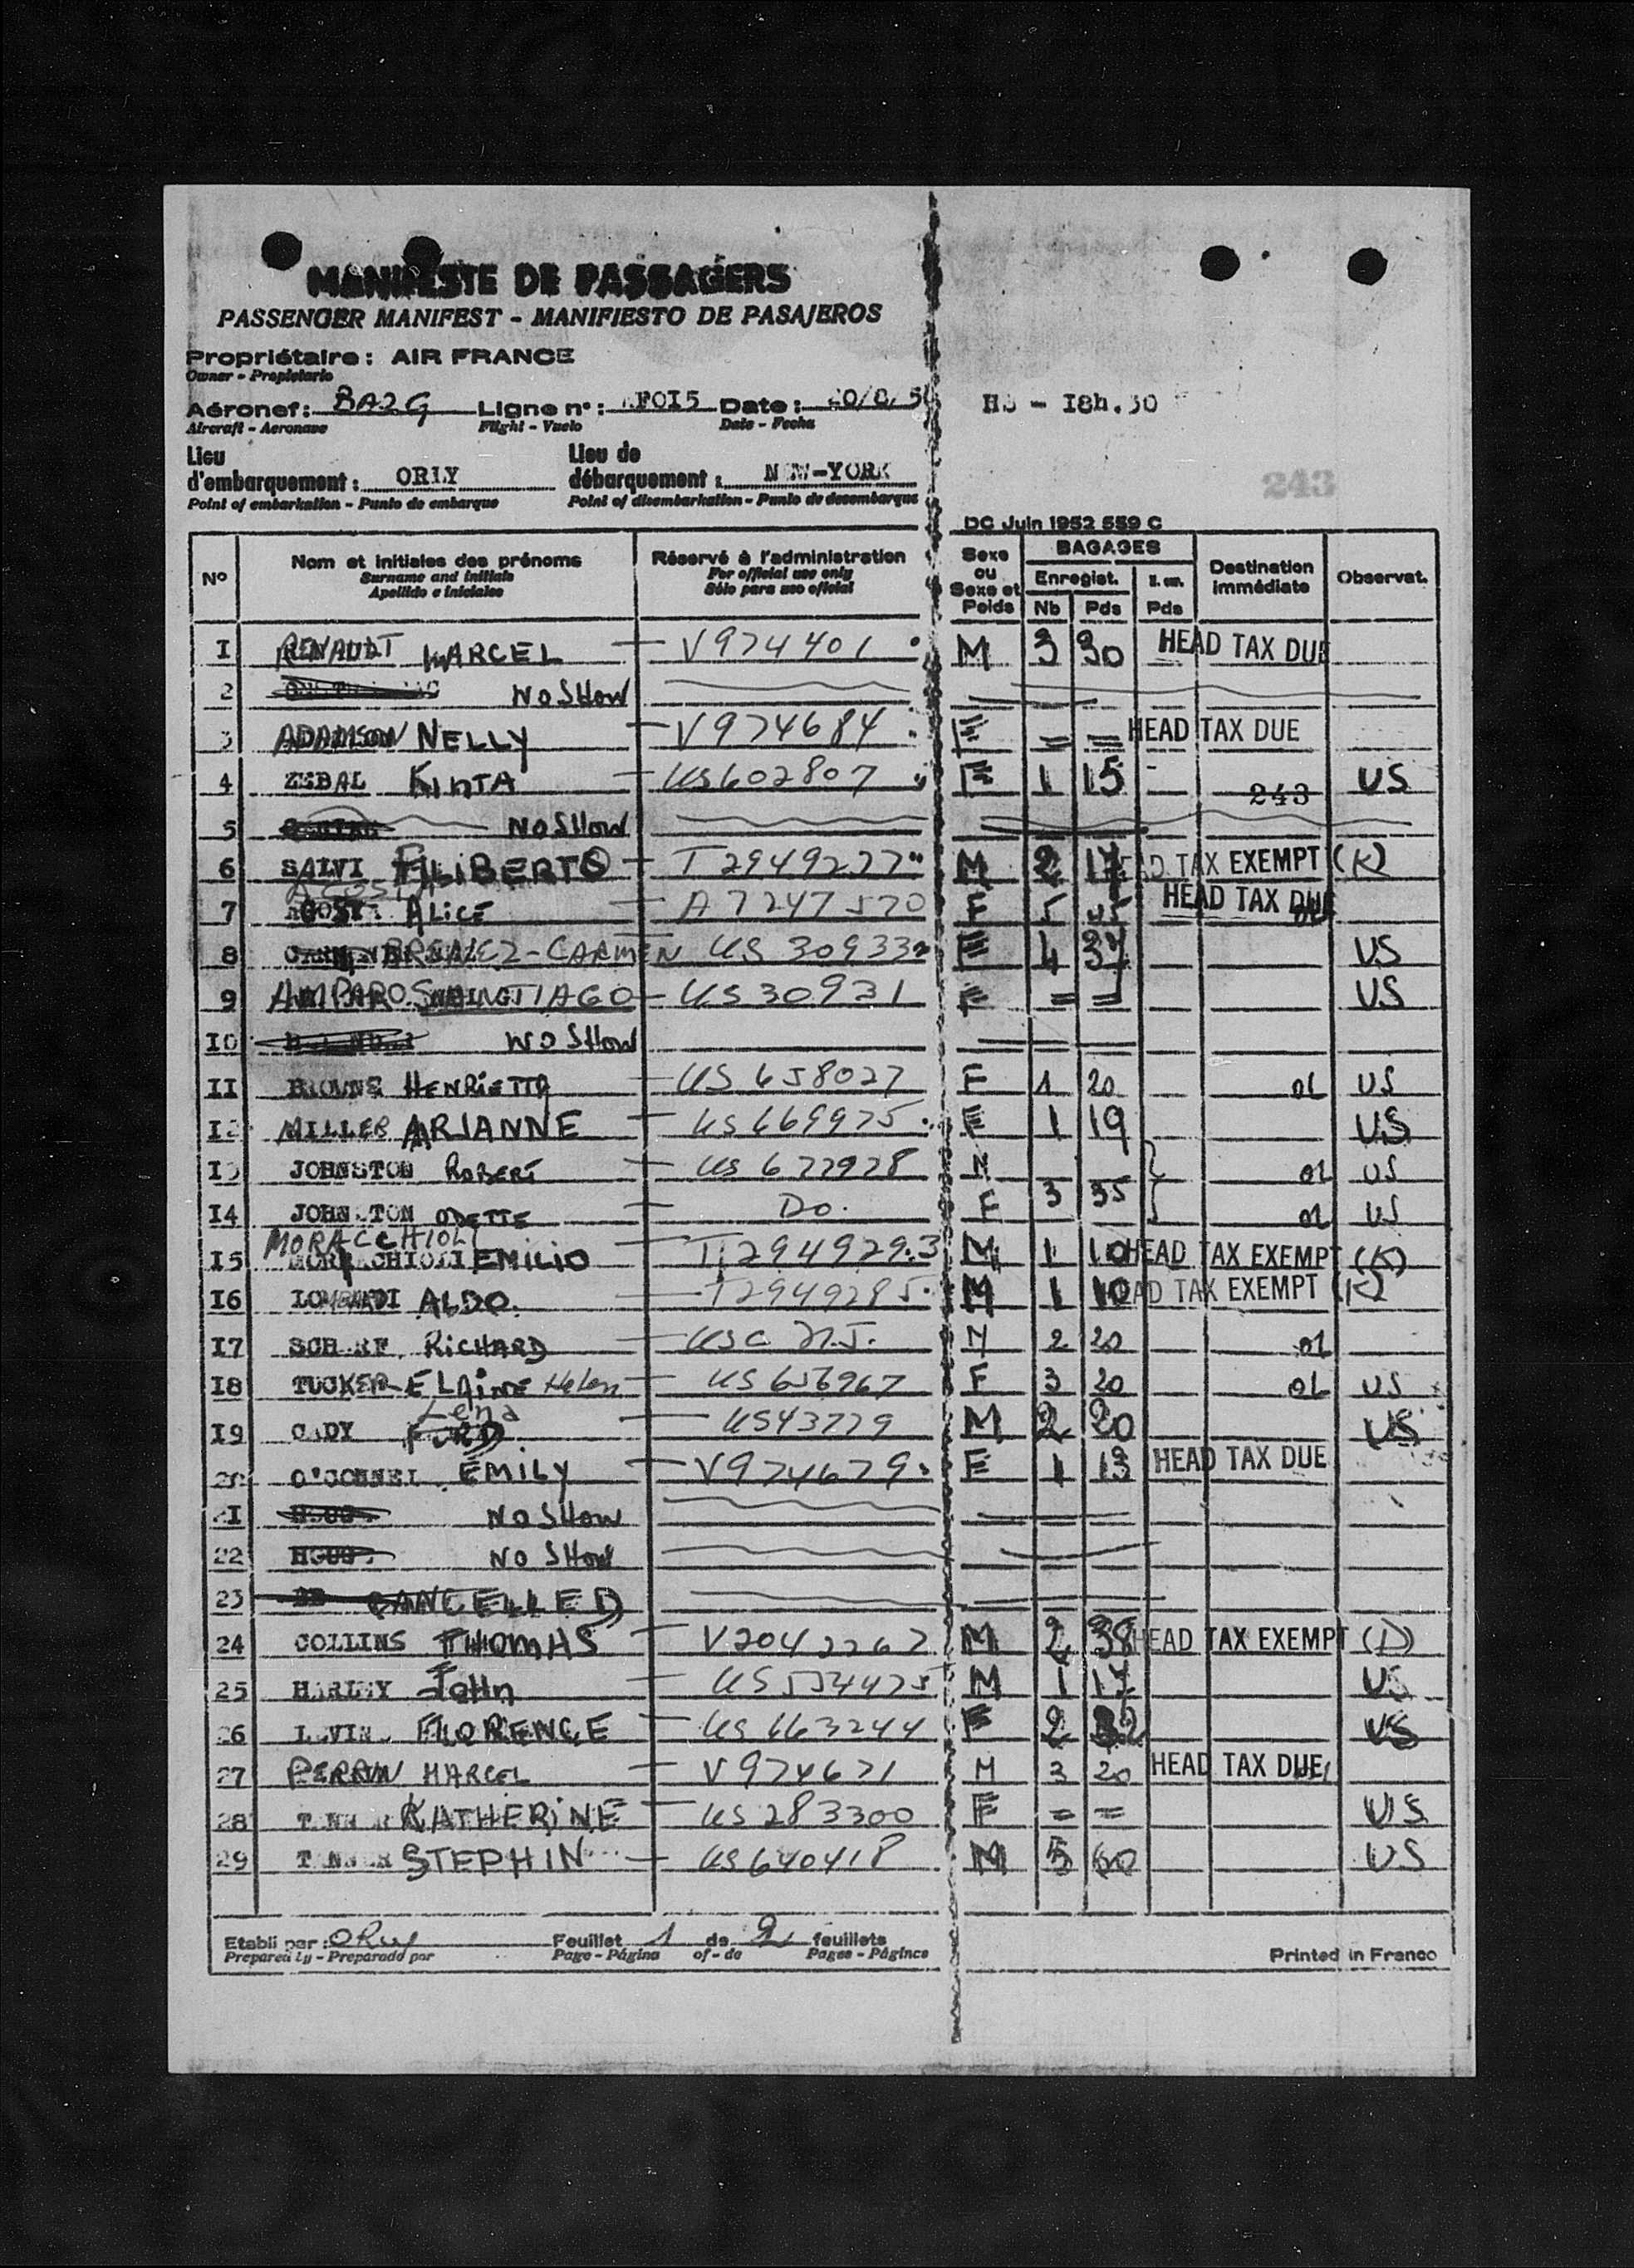 MANIFESTE DE PASSAGERS
PASSENGER MANIFEST - MANIFIESTO DE PASAJEROS
Propriétaire : AIR FRANCE
Owner - Propietario
Aéronef : BA2G Ligne n° : FOI5 Date :
Aircraft - Aeronave Flight - Vuelo Date - Fecha
- I8h.30
Lieu d'embarquement : ORLY Lieu de débarquement : NEW-YORK
Point of embarkation - Punto de embarque Point of disembarkation - Punto de desembarque
243
DC Juin 1952 559 C
N° Nom et initiales des prénoms Réservé à l'administration Sexe ou Sexe et Poids BAGAGES Destination immédiate Observat.
Surname and initials For official use only Enregist.
Apellido e iniciales Sólo para uso oficial Nb Pds Pds
I RENAULT MARCEL — V974401 M 3 30 HEAD TAX DUE
2 NO SHOW
3 ADAMSON NELLY — V974684 F = = HEAD TAX DUE
4 ZEBAL KINTA — US602807 F 1 15 - 243 US
5 NO SHOW
6 SALVI FILIBERTO — T2949277 M 2 17 HEAD TAX EXEMPT (K)
7 ACOSTA ALICE — A7247570 F 5 HEAD TAX DUE
8 BRENEZ-CARMEN US 309332 F 4 37 US
9 AMPARO SANTIAGO — US30931 F = = US
I0 NO SHOW
II HENRIETTA — US 658027 F 1 20 US
I2 MILLER ARIANNE — US669975 F 1 19 US
I3 JOHNSTON ROBERT — US 677978 M US
I4 JOHNSTON ODETTE — Do. F 3 35 US
MORACCHIOLI
I5 EMILIO — T2949293 M 1 10 HEAD TAX EXEMPT (K)
I6 LOMBARDI ALDO — T2949285 M 1 10 HEAD TAX EXEMPT (K)
I7 RICHARD — USC M 2 20
I8 TUCKER ELAINE Helen — US 656967 F 3 20 US
Lena
I9 CADY FORD — US43779 M 2 20 US
20 O'CONNEL EMILY — V974679 F 1 13 HEAD TAX DUE
2I NO SHOW
22 NO SHOW
23 CANCELLED
24 COLLINS THOMAS — V2042262 M 2 38 HEAD TAX EXEMPT (D)
25 HARLEY JOHN — US554475 M 1 17 US
26 LEVINE FLORENCE — US 663244 F 2 32 US
27 PERRIN MARCEL — V974671 M 3 20 HEAD TAX DUE
28 TANNER KATHERINE — US 283300 F = = US
29 TANNER STEPHIN — US640418 M 5 60 US
Etabli par : ORLY Feuillet 1 de 2 feuillets
Prepared by - Preparado por Page - Página of - de Pages - Páginas Printed in France